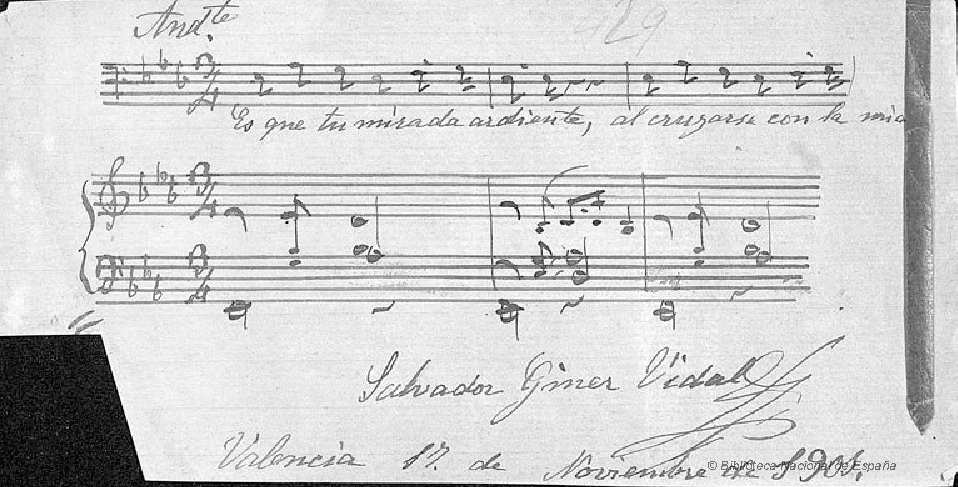 Andte.
129
Es que tu mirada ardiente, al cruzarse con la mia
Salvador Giner Vidal
Valencia 17. de Noviembre de 1901.
© Biblioteca Nacional de España